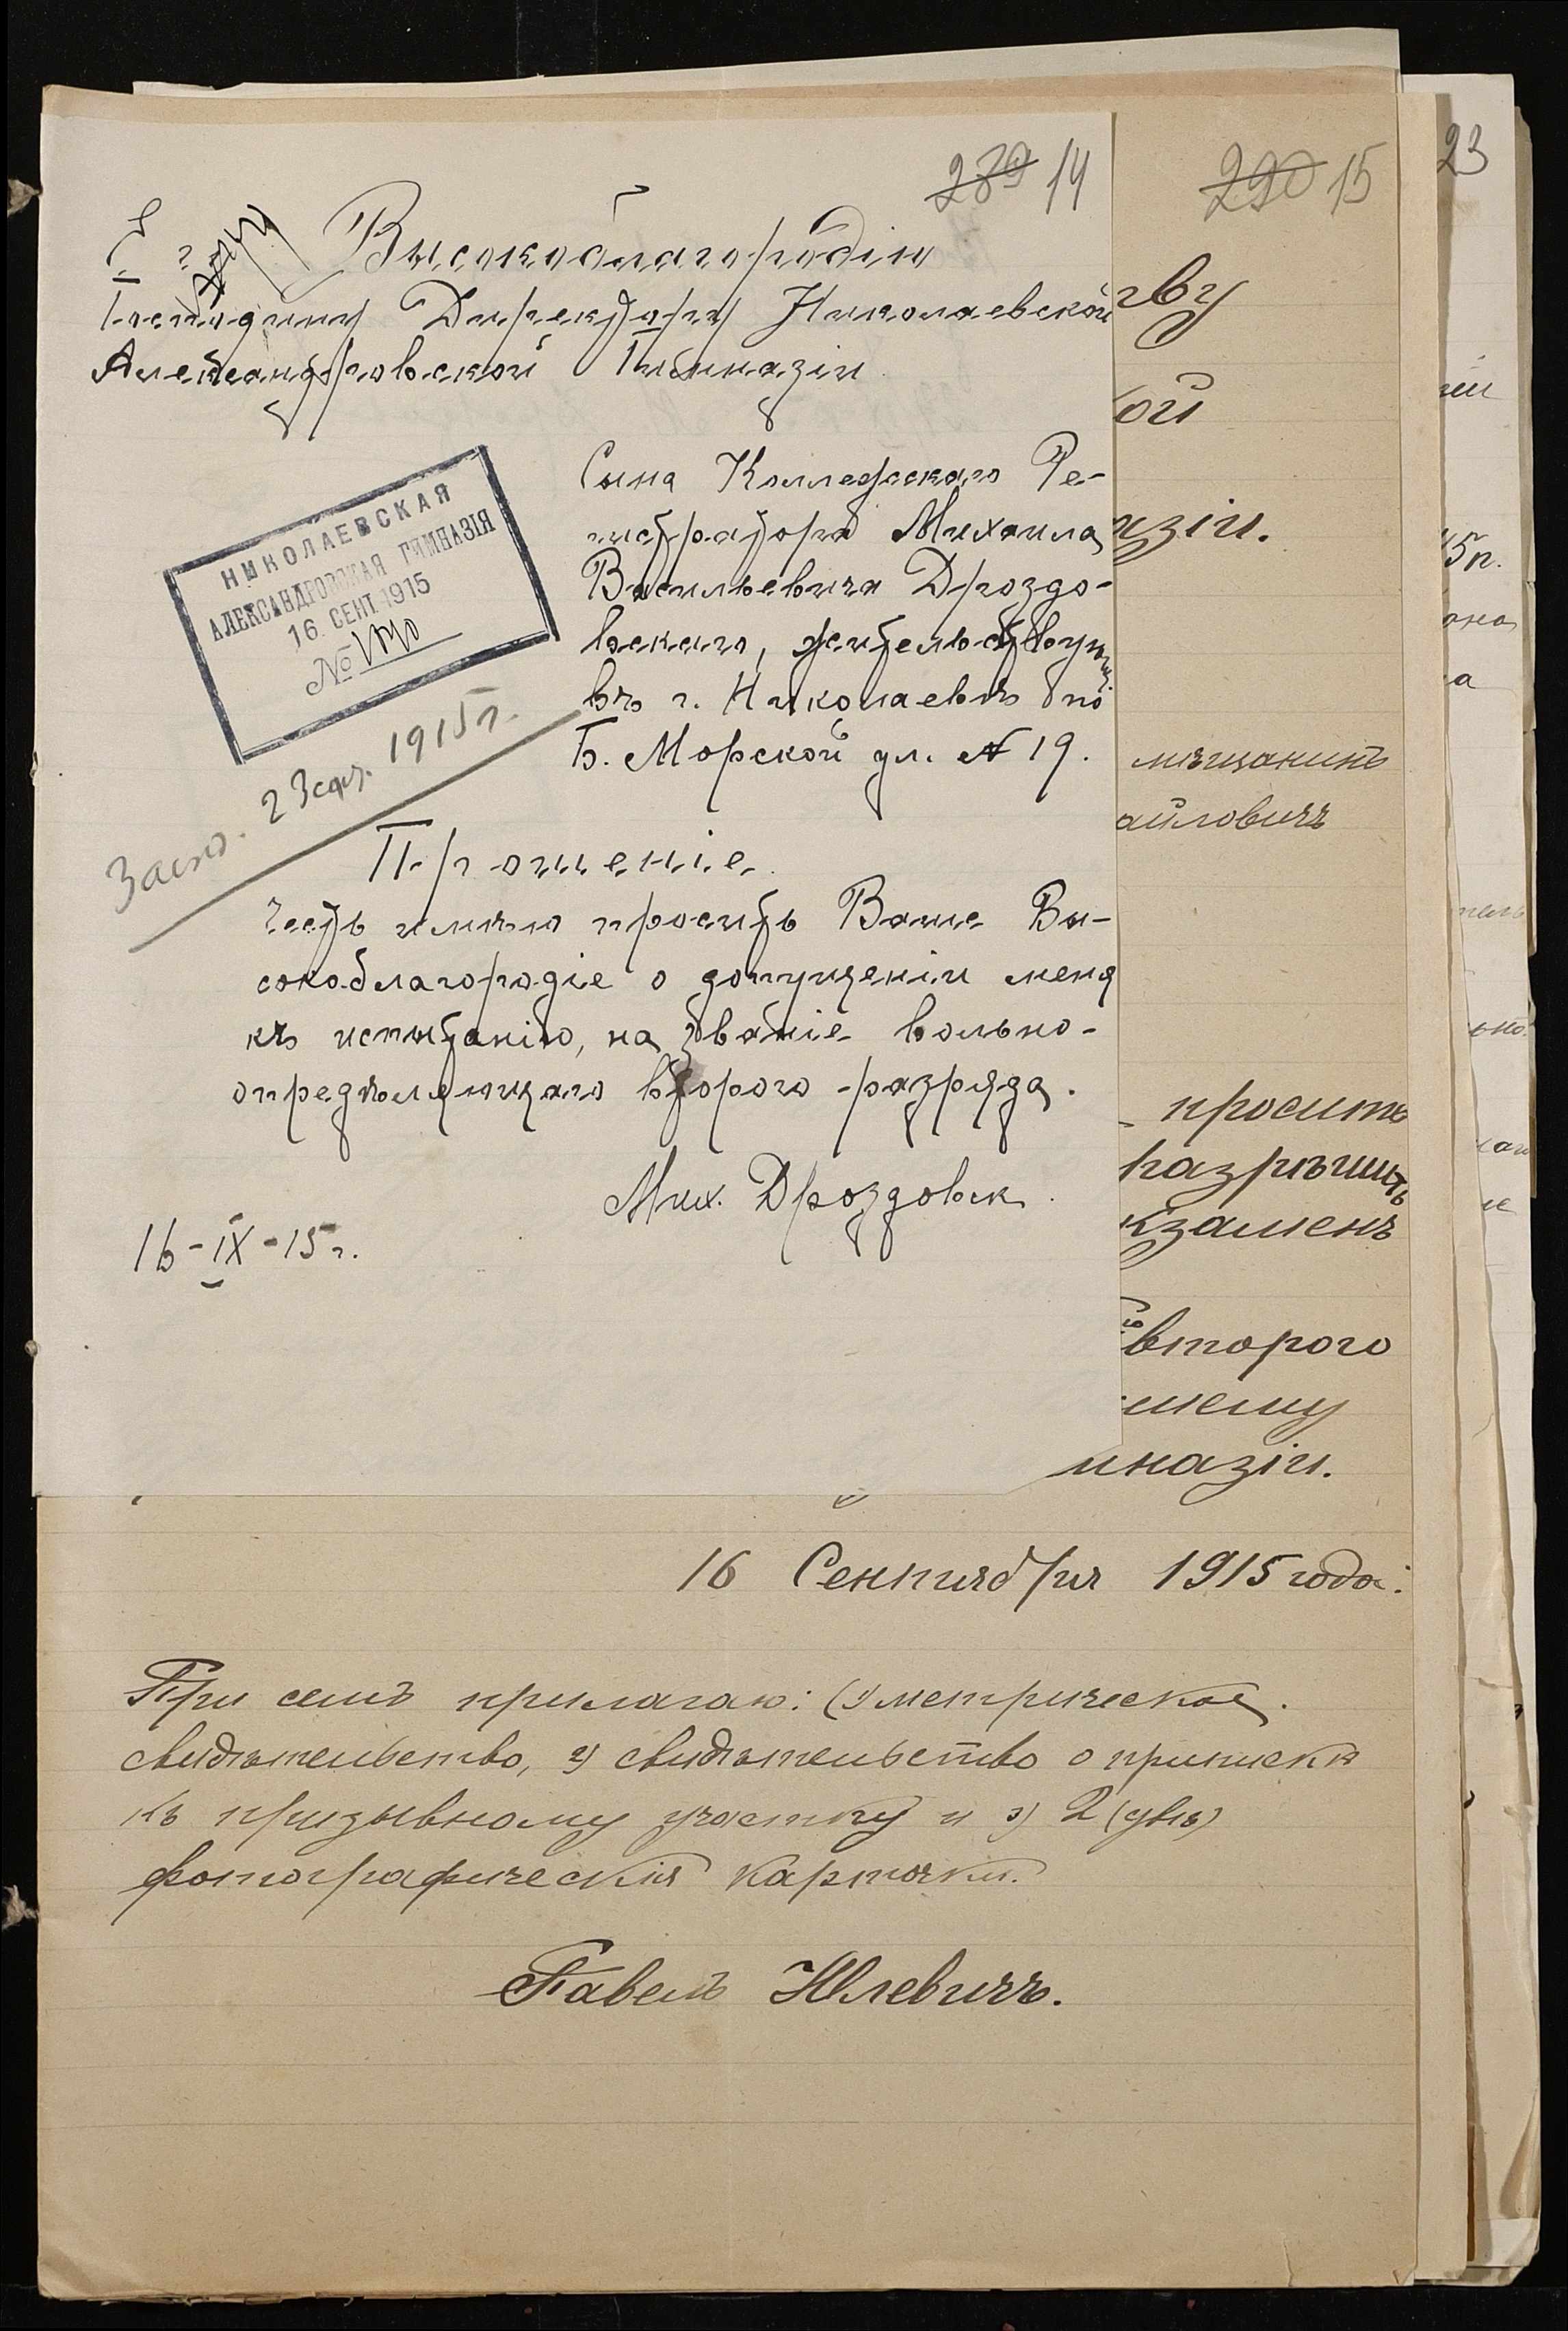 289 14
Его Высокоблагородію
Господину Директору Николаевской
Александровской Гимназіи
НИКОЛАЕВСКАЯ
АЛЕКСАНДРОВСКАЯ ГИМНАЗІЯ
16. СЕНТ. 1915
№
Сына Коллежскаго Ре-
гистратора Михаила
Васильевича Дроздо-
вскаго, жительствующ.
въ г. Николаевѣ по
Б. Морской ул. № 19.
23 сент. 1915 г.
Прошеніе.
Честь имѣю просить Ваше Вы-
сокоблагородіе о допущеніи меня
къ испытанію, на званіе вольно-
опредѣляющаго второго разряда.
Мих. Дроздовск
16-IX-15 г.
290 15
тву
ой
азіи.
мѣщанинъ
айловичъ
просить
разрѣшить
кзаменъ
второго
шему
мназіи.
16 Сентября 1915 года.
При семъ прилагаю: 1) метрическое
свидѣтельство, 2) свидѣтельство о припискѣ
къ призывному участку и 3) 2 (двѣ)
фотографическія карточки.
Павелъ Юлевичъ.
23
15 г.